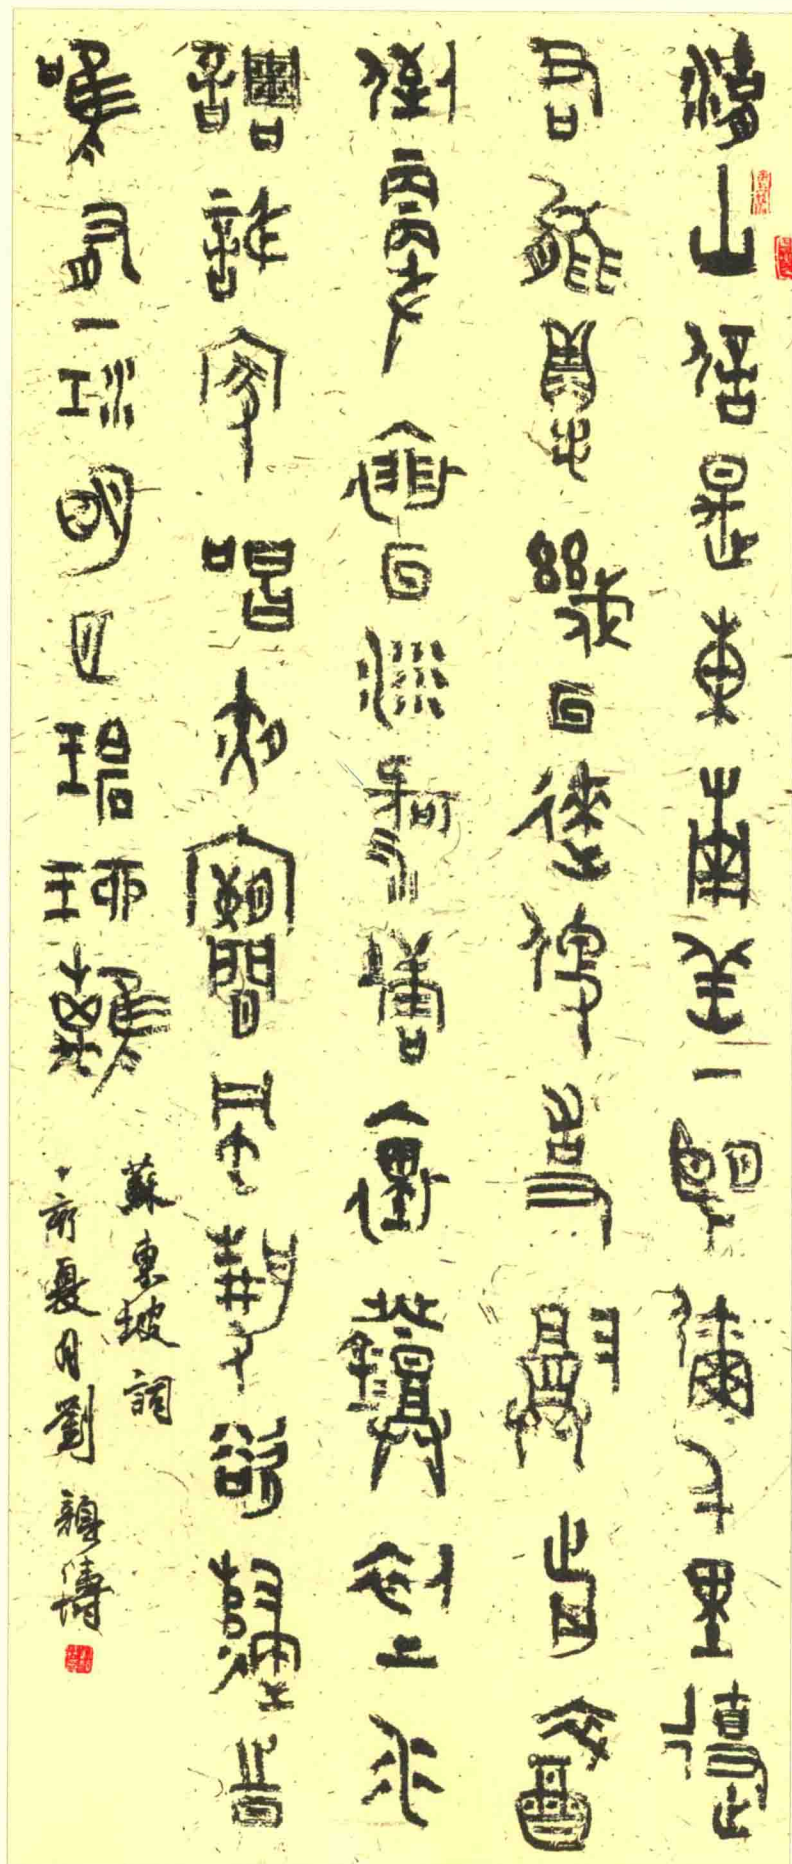 湖山信是東南美一望彌千里使
君能得幾回來便使尊前醉
倒更徘徊沙河塘裏燈初上水
調誰家唱夜闌風靜欲歸時
唯有一江明月碧琉璃
蘇東坡詞
亥夏月劉